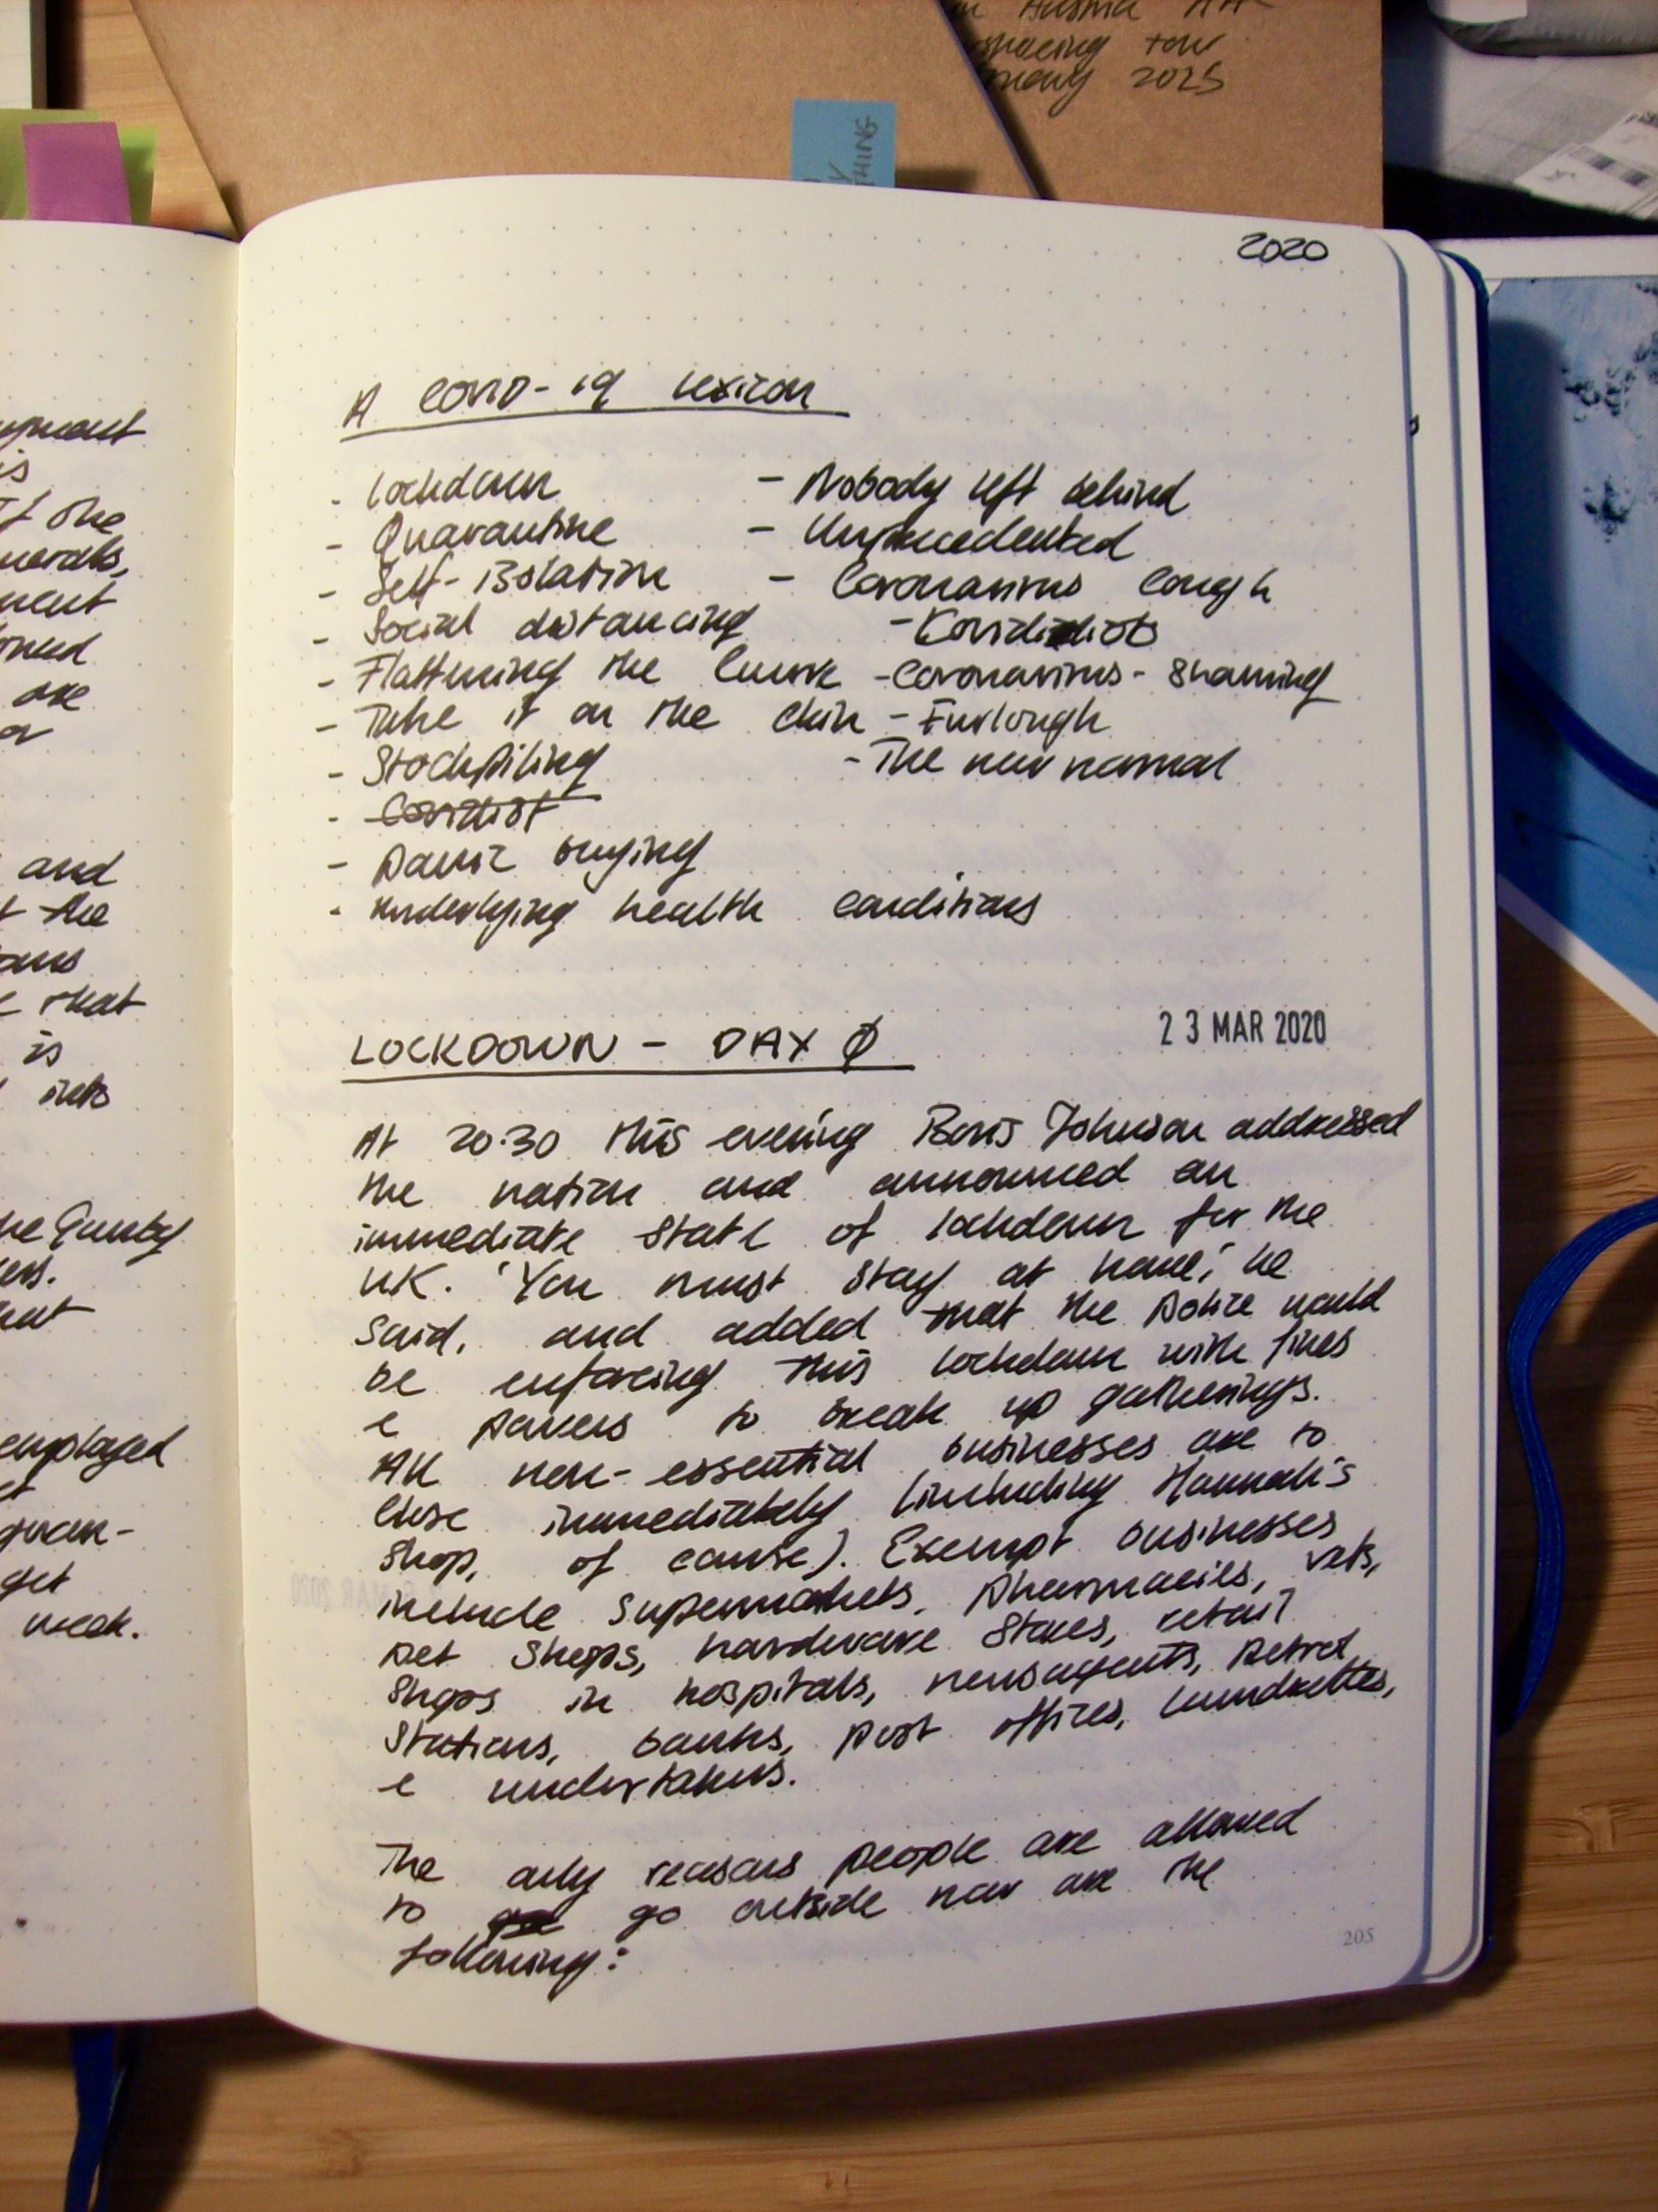 Austria
spacing tour
many 2025
THING
2020
A COVID-19 Lexicon
- Lockdown
- Quarantine
- Self-isolation
- Social distancing
- Flattening the Curve
- Take it on the chin
- Stockpiling
- Covidiot
- Panic buying
- Underlying health conditions
- Nobody left behind
- Unprecedented
- Coronavirus Cough
- Covidiots
- Coronavirus-Shaming
- Furlough
- The new normal
LOCKDOWN - DAY 0
23 MAR 2020
At 20.30 this evening Boris Johnson addressed
the nation and announced an
immediate state of lockdown for the
UK. 'You must stay at home', he
said, and added that the police would
be enforcing this lockdown with fines
& powers to break up gatherings.
All non-essential businesses are to
close immediately (including Hannah's
shop, of course). Exempt businesses
include supermarkets, pharmacies, vets,
pet shops, hardware stores, retail
shops in hospitals, newsagents, petrol
stations, banks, post offices, laundrettes,
& undertakers.
The only reasons people are allowed
to go outside now are the
following:
205
is
the
are
and
the
that
is
into
employed
get
week.